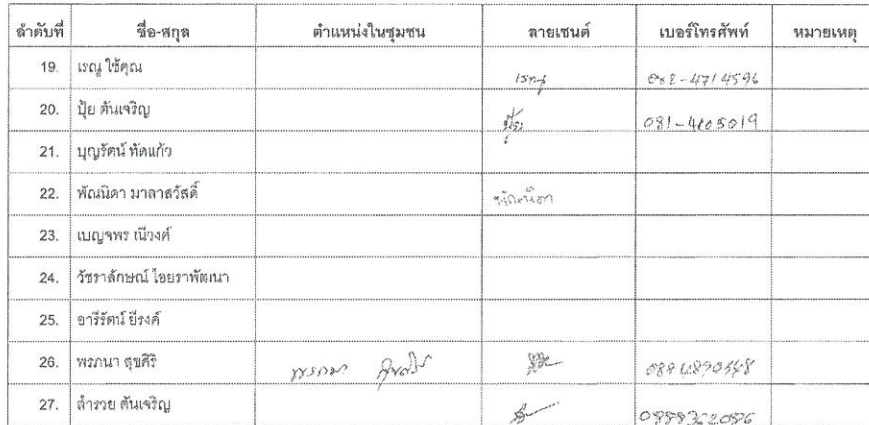 ลำดับที่ ชื่อ-สกุล ตำแหน่งในชุมชน ลายเซนต์ เบอร์โทรศัพท์ หมายเหตุ
19. เรณู ใช้คุณ เรณู 082-4714596
20. ปุ้ย ตันเจริญ ปุ้ย
21. บุญรัตน์ ทัดแก้ว
22. พัณนิดา มาลาสวัสดิ์ พัณนิดา
23. เบญจพร เนีวงค์
24. วัชราลักษณ์ ไอยราพัฒนา
25. อารีรัตน์ ยีรงค์
26. พรภนา สุขศิริ พรภนา สุขศิริ
27. สำรวย ตันเจริญ